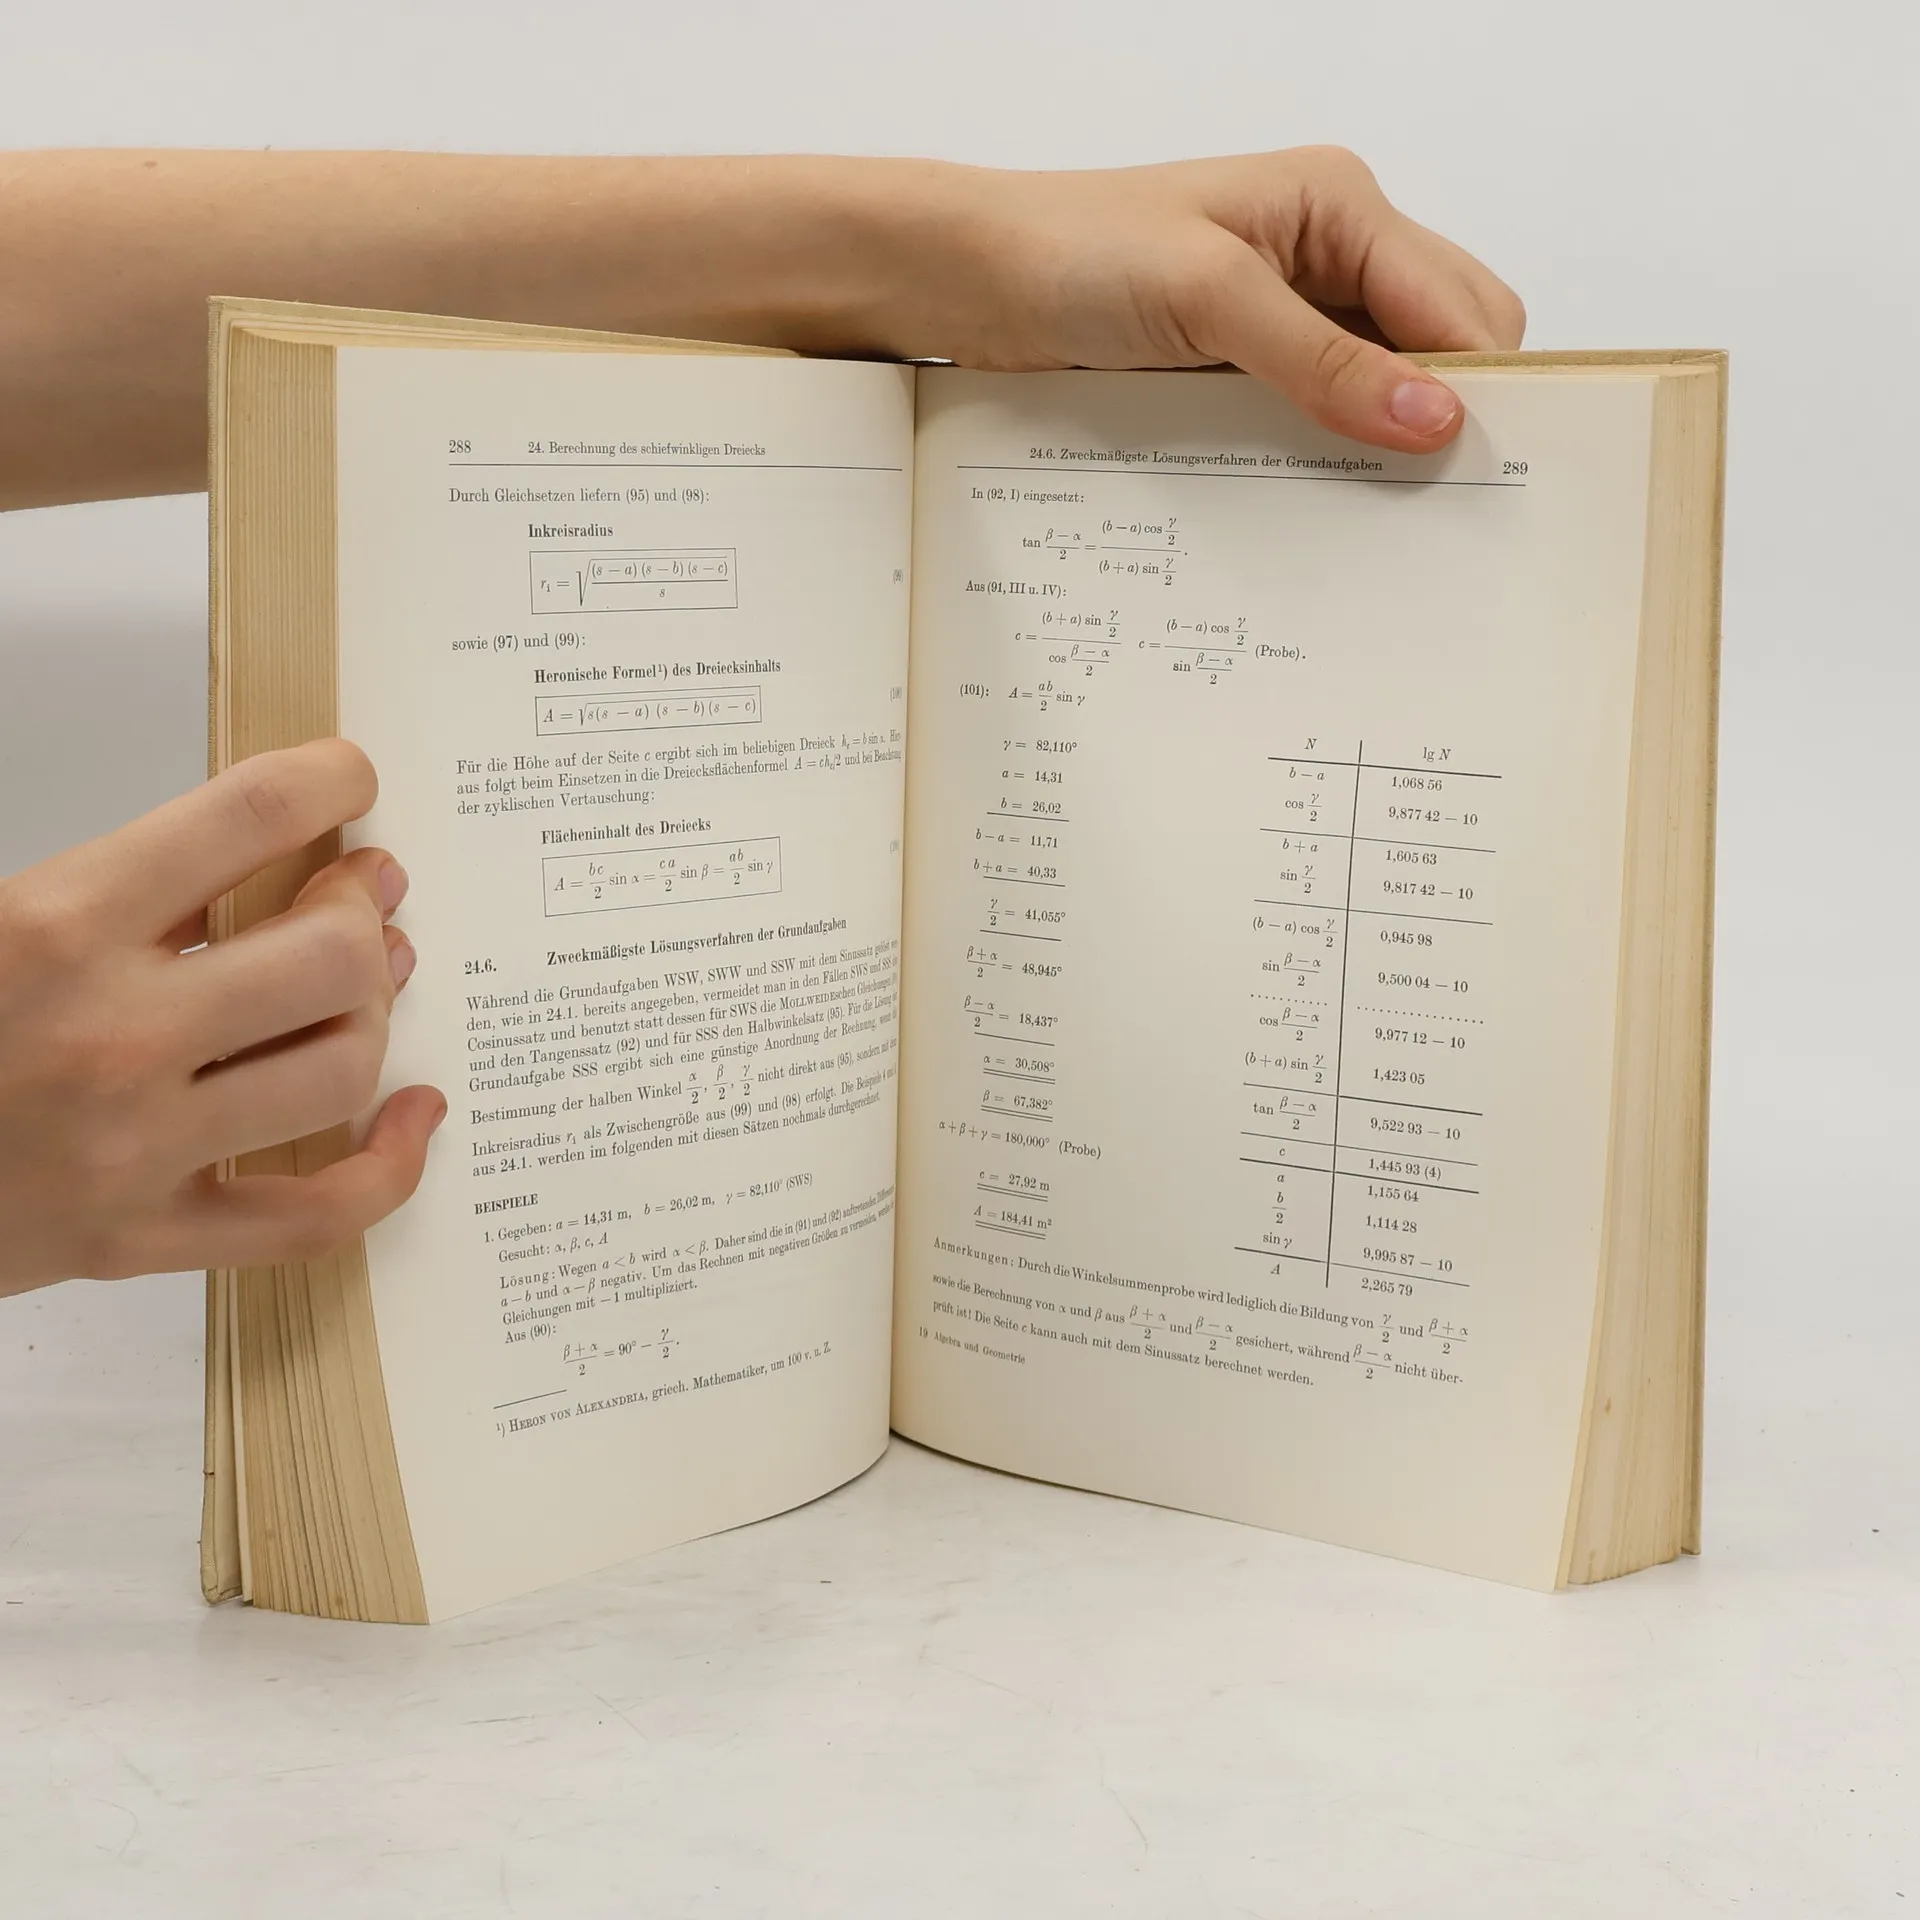 288 24. Berechnung des schiefwinkligen Dreiecks
Durch Gleichsetzen liefern (95) und (98):
Inkreisradius
r₁ = √((s − a) (s − b) (s − c) / s) (99)
sowie (97) und (99):
Heronische Formel¹) des Dreiecksinhalts
A = √(s(s − a) (s − b) (s − c)) (100)
Für die Höhe auf der Seite c ergibt sich im beliebigen Dreieck h_c = b sin α. Hier-
aus folgt beim Einsetzen in die Dreiecksflächenformel A = ch_c/2 und bei Beachtung
der zyklischen Vertauschung:
Flächeninhalt des Dreiecks
A = bc/2 sin α = ca/2 sin β = ab/2 sin γ
24.6. Zweckmäßigste Lösungsverfahren der Grundaufgaben
Während die Grundaufgaben WSW, SWW und SSW mit dem Sinussatz gelöst wer-
den, wie in 24.1. bereits angegeben, vermeidet man in den Fällen SWS und SSS den
Cosinussatz und benutzt statt dessen für SWS die MOLLWEIDEschen Gleichungen
und den Tangenssatz (92) und für SSS den Halbwinkelsatz (95). Für die Lösung der
Grundaufgabe SSS ergibt sich eine günstige Anordnung der Rechnung, wenn die
Bestimmung der halben Winkel α/2, β/2, γ/2 nicht direkt aus (95), sondern mit dem
Inkreisradius r₁ als Zwischengröße aus (99) und (98) erfolgt. Die Beispiele 4 und
aus 24.1. werden im folgenden mit diesen Sätzen nochmals durchgerechnet.
BEISPIELE
1. Gegeben: a = 14,31 m, b = 26,02 m, γ = 82,110° (SWS)
Gesucht: α, β, c, A
Lösung: Wegen a < b wird α < β. Daher sind die in (91) und (92) auftretenden Differenzen
a − b und α − β negativ. Um das Rechnen mit negativen Größen zu vermeiden, werden
Gleichungen mit − 1 multipliziert.
Aus (90):
(β + α)/2 = 90° − γ/2.
¹) HERON VON ALEXANDRIA, griech. Mathematiker, um 100 v. u. Z.
24.6. Zweckmäßigste Lösungsverfahren der Grundaufgaben 289
In (92, I) eingesetzt:
tan (β − α)/2 = ((b − a) cos γ/2) / ((b + a) sin γ/2).
Aus (91, III u. IV):
c = ((b + a) sin γ/2) / (cos (β − α)/2) c = ((b − a) cos γ/2) / (sin (β − α)/2) (Probe).
(101): A = ab/2 sin γ
γ = 82,110°
a = 14,31
b = 26,02
b − a = 11,71
b + a = 40,33
γ/2 = 41,055°
(β + α)/2 = 48,945°
(β − α)/2 = 18,437°
α = 30,508°
β = 67,382°
α + β + γ = 180,000° (Probe)
c = 27,92 m
A = 184,41 m²
N lg N
b − a 1,068 56
cos γ/2 9,877 42 − 10
b + a 1,605 63
sin γ/2 9,817 42 − 10
(b − a) cos γ/2 0,945 98
sin (β − α)/2 9,500 04 − 10
cos (β − α)/2 9,977 12 − 10
(b + a) sin γ/2 1,423 05
tan (β − α)/2 9,522 93 − 10
c 1,445 93 (4)
a 1,155 64
b/2 1,114 28
sin γ 9,995 87 − 10
A 2,265 79
Anmerkungen: Durch die Winkelsummenprobe wird lediglich die Bildung von γ/2 und (β + α)/2
sowie die Berechnung von α und β aus (β + α)/2 und (β − α)/2 gesichert, während (β − α)/2 nicht über-
prüft ist! Die Seite c kann auch mit dem Sinussatz berechnet werden.
19 Algebra und Geometrie